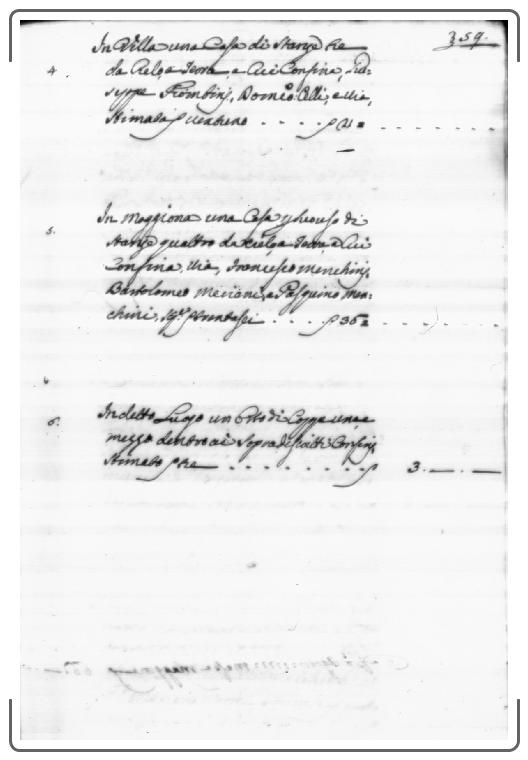 359.
4. In Villa una Casa di Stanze tre
da Cielo a Terra, e Cui Confina, Giu=
seppe Piombini, Domco Elli, e Via,
Stimata p ventuno . . . . p 21 = . . . . . . .
5. In Moggiona una Casa p uso di
Stanze quattro da cielo a Terra a Cui
Confina, Via, Francesco Menchini,
Bartolomeo Meciani, e Pasquino Men=
chini, p Trentasei . . . . p 36 = . . . . . .
6. In detto Luogo un Orto di Coppe una e
mezzo dentro ai Sopradescritti Confini,
Stimato p tre . . . . . . . p 3. — . —